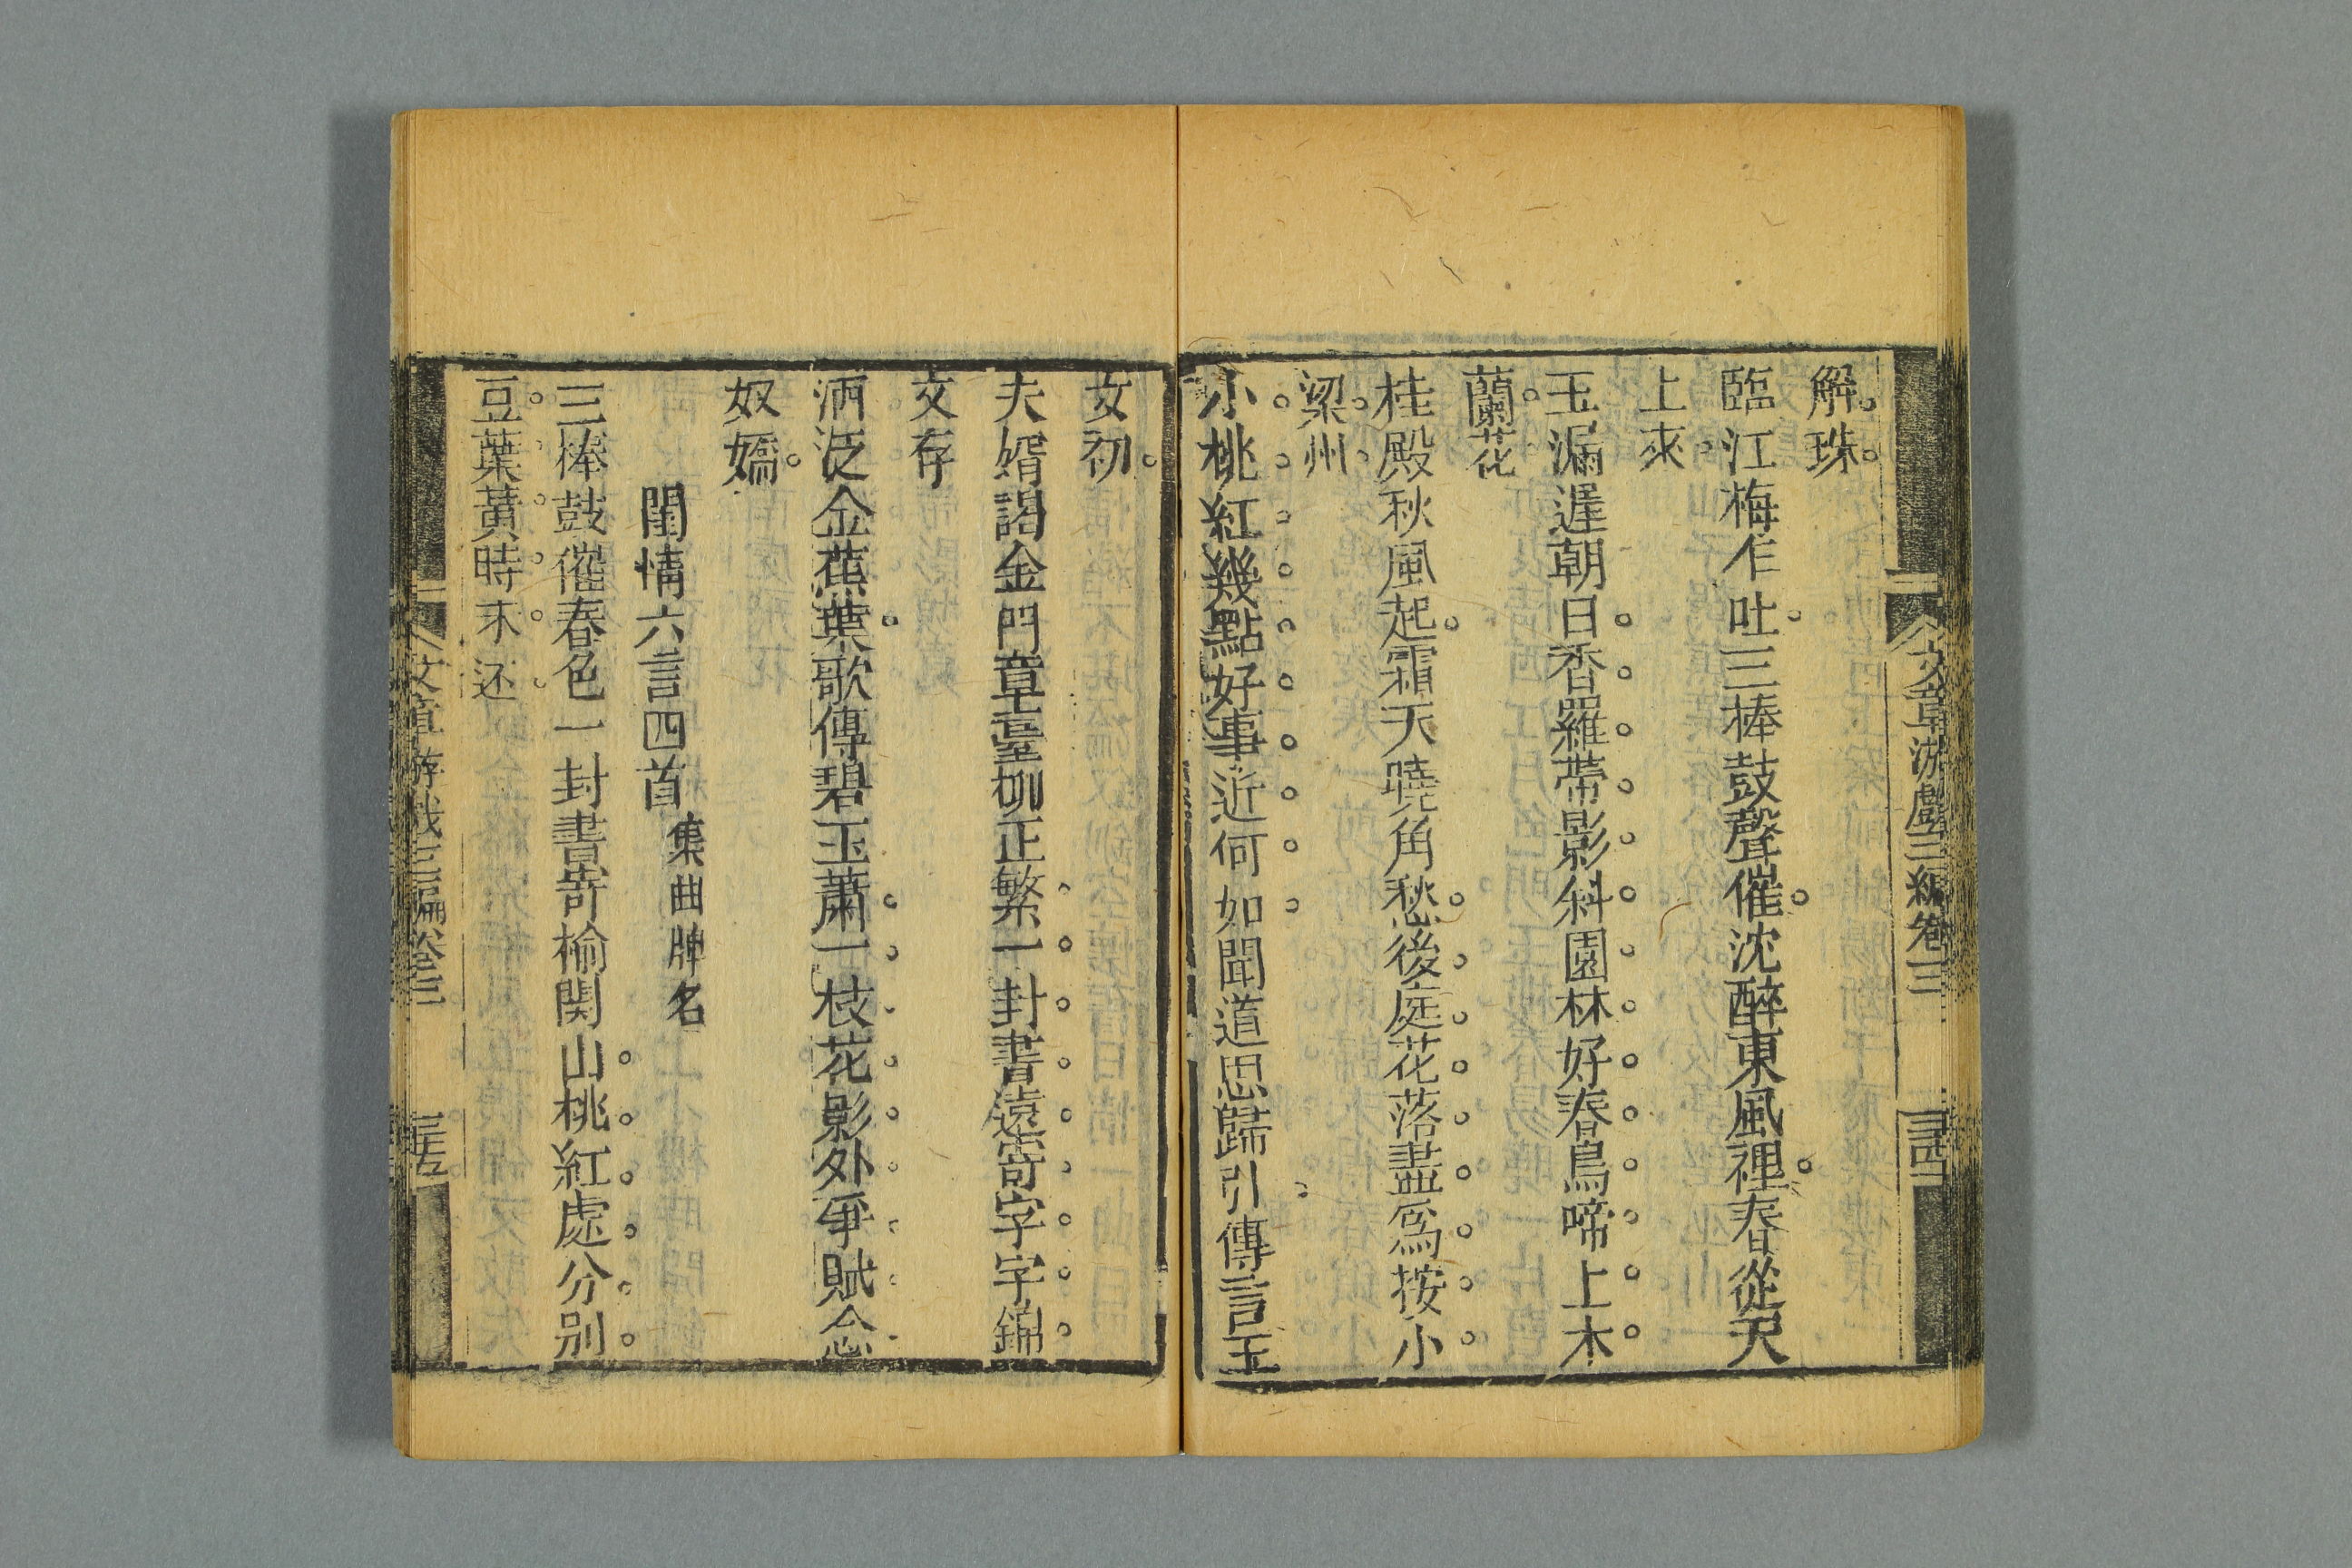 文章游戲三編卷三
三四
解珠
臨江梅乍吐三棒鼓聲催沈醉東風裡春從天
上來
玉漏遲朝日香羅帶影斜園林好春鳥啼上木
蘭花
桂殿秋風起霜天曉角愁後庭花落盡為按小
梁州
小桃紅幾點好事近何如聞道思歸引傳言玉
女初
夫婿謁金門章臺柳正繁一封書遠寄字字錦
文存
酒泛金蕉葉歌傳碧玉蕭一枝花影外爭賦念
奴嬌
閨情六言四首集曲牌名
三棒鼓催春色一封書寄榆関山桃紅處分别
豆葉黃時未还
文章游戲三編卷三